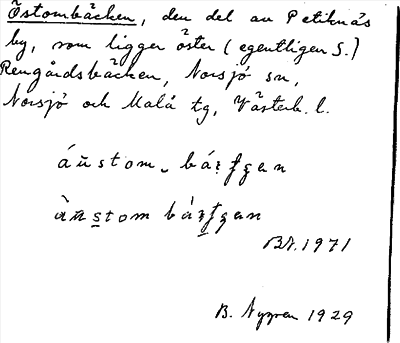 Östombäcken, den del av Petiknäs
by, som ligger öster (egentligen S.)
Rengårdsbäcken, Norsjö sn,
Norsjö och Malå tg, Västerb. l.
áu̇stom
àu̇s̲tom
1971
B. Nygren 1929